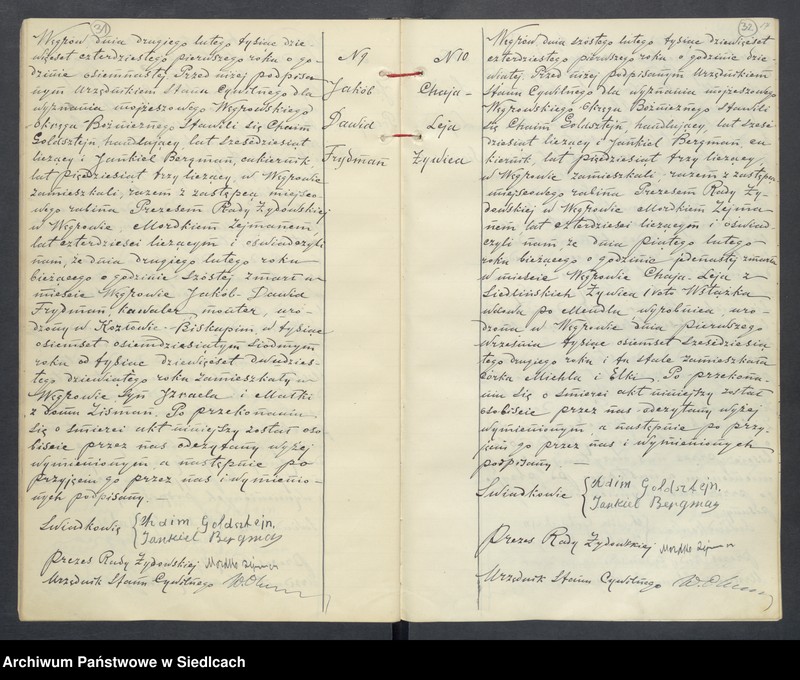 31
Węgrów dnia drugiego lutego tysiąc dzie-
więset czterdziestego pierwszego roku o go-
dzinie osiemnastej Przed niżej podpisa-
nym Urzędnikiem Stanu Cywilnego dla
wyznania mojżeszowego Węgrowskiego
Okręgu Bożniczego Stawili się Chaim
Goldsztejn, handlujący, lat sześdziesiat
liczący i Jankiel Bergman, cukiernik,
lat pięćdziesiat trzy liczący, w Węgrowie
zamieszkali, razem z zastępcą miejsco-
wego rabina Prezesem Rady Żydowskiej
w Węgrowie, Mordkiem Zejmanem,
lat czterdzieści liczącym i oświadczyli
nam, że dnia drugiego lutego roku
bieżącego o godzinie szóstej zmarł w
mieście Węgrowie Jakób-Dawid
Frydman, kawaler monter, uro-
dzony w Kozłowie-Biskupim w tysiąc
osiemset osiemdziesiatym siódmym
roku od tysiąc dziewięcset dwudzies-
tego dziewiątego roku zamieszkały w
Węgrowie syn Izraela i Matki
z domu Zisman. Po przekonaniu
się o śmierci akt niniejszy został oso-
biście przez nas odczytany wyżej
wymienionym a następnie po
przyjęciu go przez nas i wymienio-
nych podpisany. —
Świadkowie { Chaim Goldsztejn.
Jankiel Bergman
Prezes Rady Żydowskiej Mordko Zejman
Urzędnik Stanu Cywilnego
N 9
Jakób
Dawid
Frydman
N 10
Chaja-
Leja
Żywica
32
Węgrów dnia szóstego lutego tysiąc dziewięcset
czterdziestego pierwszego roku o godzinie dzie-
wiątej. Przed niżej podpisanym Urzędnikiem
Stanu Cywilnego dla wyznania mojżeszowego
Węgrowskiego Okręgu Bożniczego stawili
się Chaim Goldsztejn, handlujący, lat sześ-
dziesiat liczący i Jankiel Bergman, cu-
kiernik, lat pięćdziesiat trzy liczący,
w Węgrowie zamieszkali, razem z zastępcą
miejscowego rabina Prezesem Rady Ży-
dowskiej w Węgrowie Mordkiem Zejma-
nem, lat czterdzieści liczącym i oświad-
czyli nam, że dnia piątego lutego
roku bieżącego o godzinie jedenastej zmarła
w mieście Węgrowie Chaja-Leja z
Siedlińskich Żywica 1 voto Wstążka
wdowa po Mendlu wyrobnica, uro-
dzona w Węgrowie dnia pierwszego
września tysiąc osiemset sześdziesia-
tego drugiego roku i tu stale zamieszkała
córka Michla i Elki. Po przekona-
niu się o śmierci akt niniejszy został
osobiście przez nas odczytany wyżej
wymienionym a następnie po przy-
jęciu go przez nas i wymienionych
podpisany. —
Świadkowie { Chaim Goldsztejn.
Jankiel Bergman
Prezes Rady Żydowskiej Mordko Zejman
Urzędnik Stanu Cywilnego
Archiwum Państwowe w Siedlcach